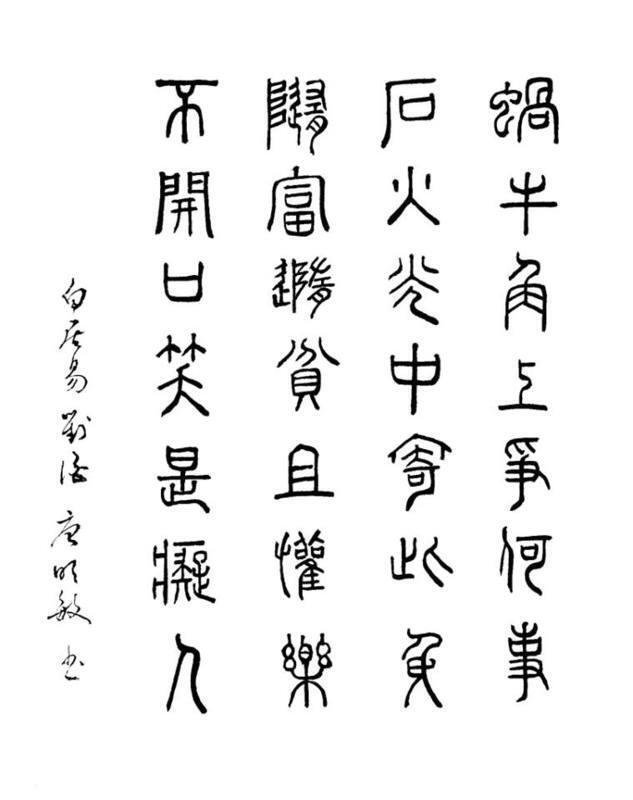 蝸牛角上爭何事
石火光中寄此身
隨富隨貧且懽樂
不開口笑是癡人
白居易對酒 唐明敏書